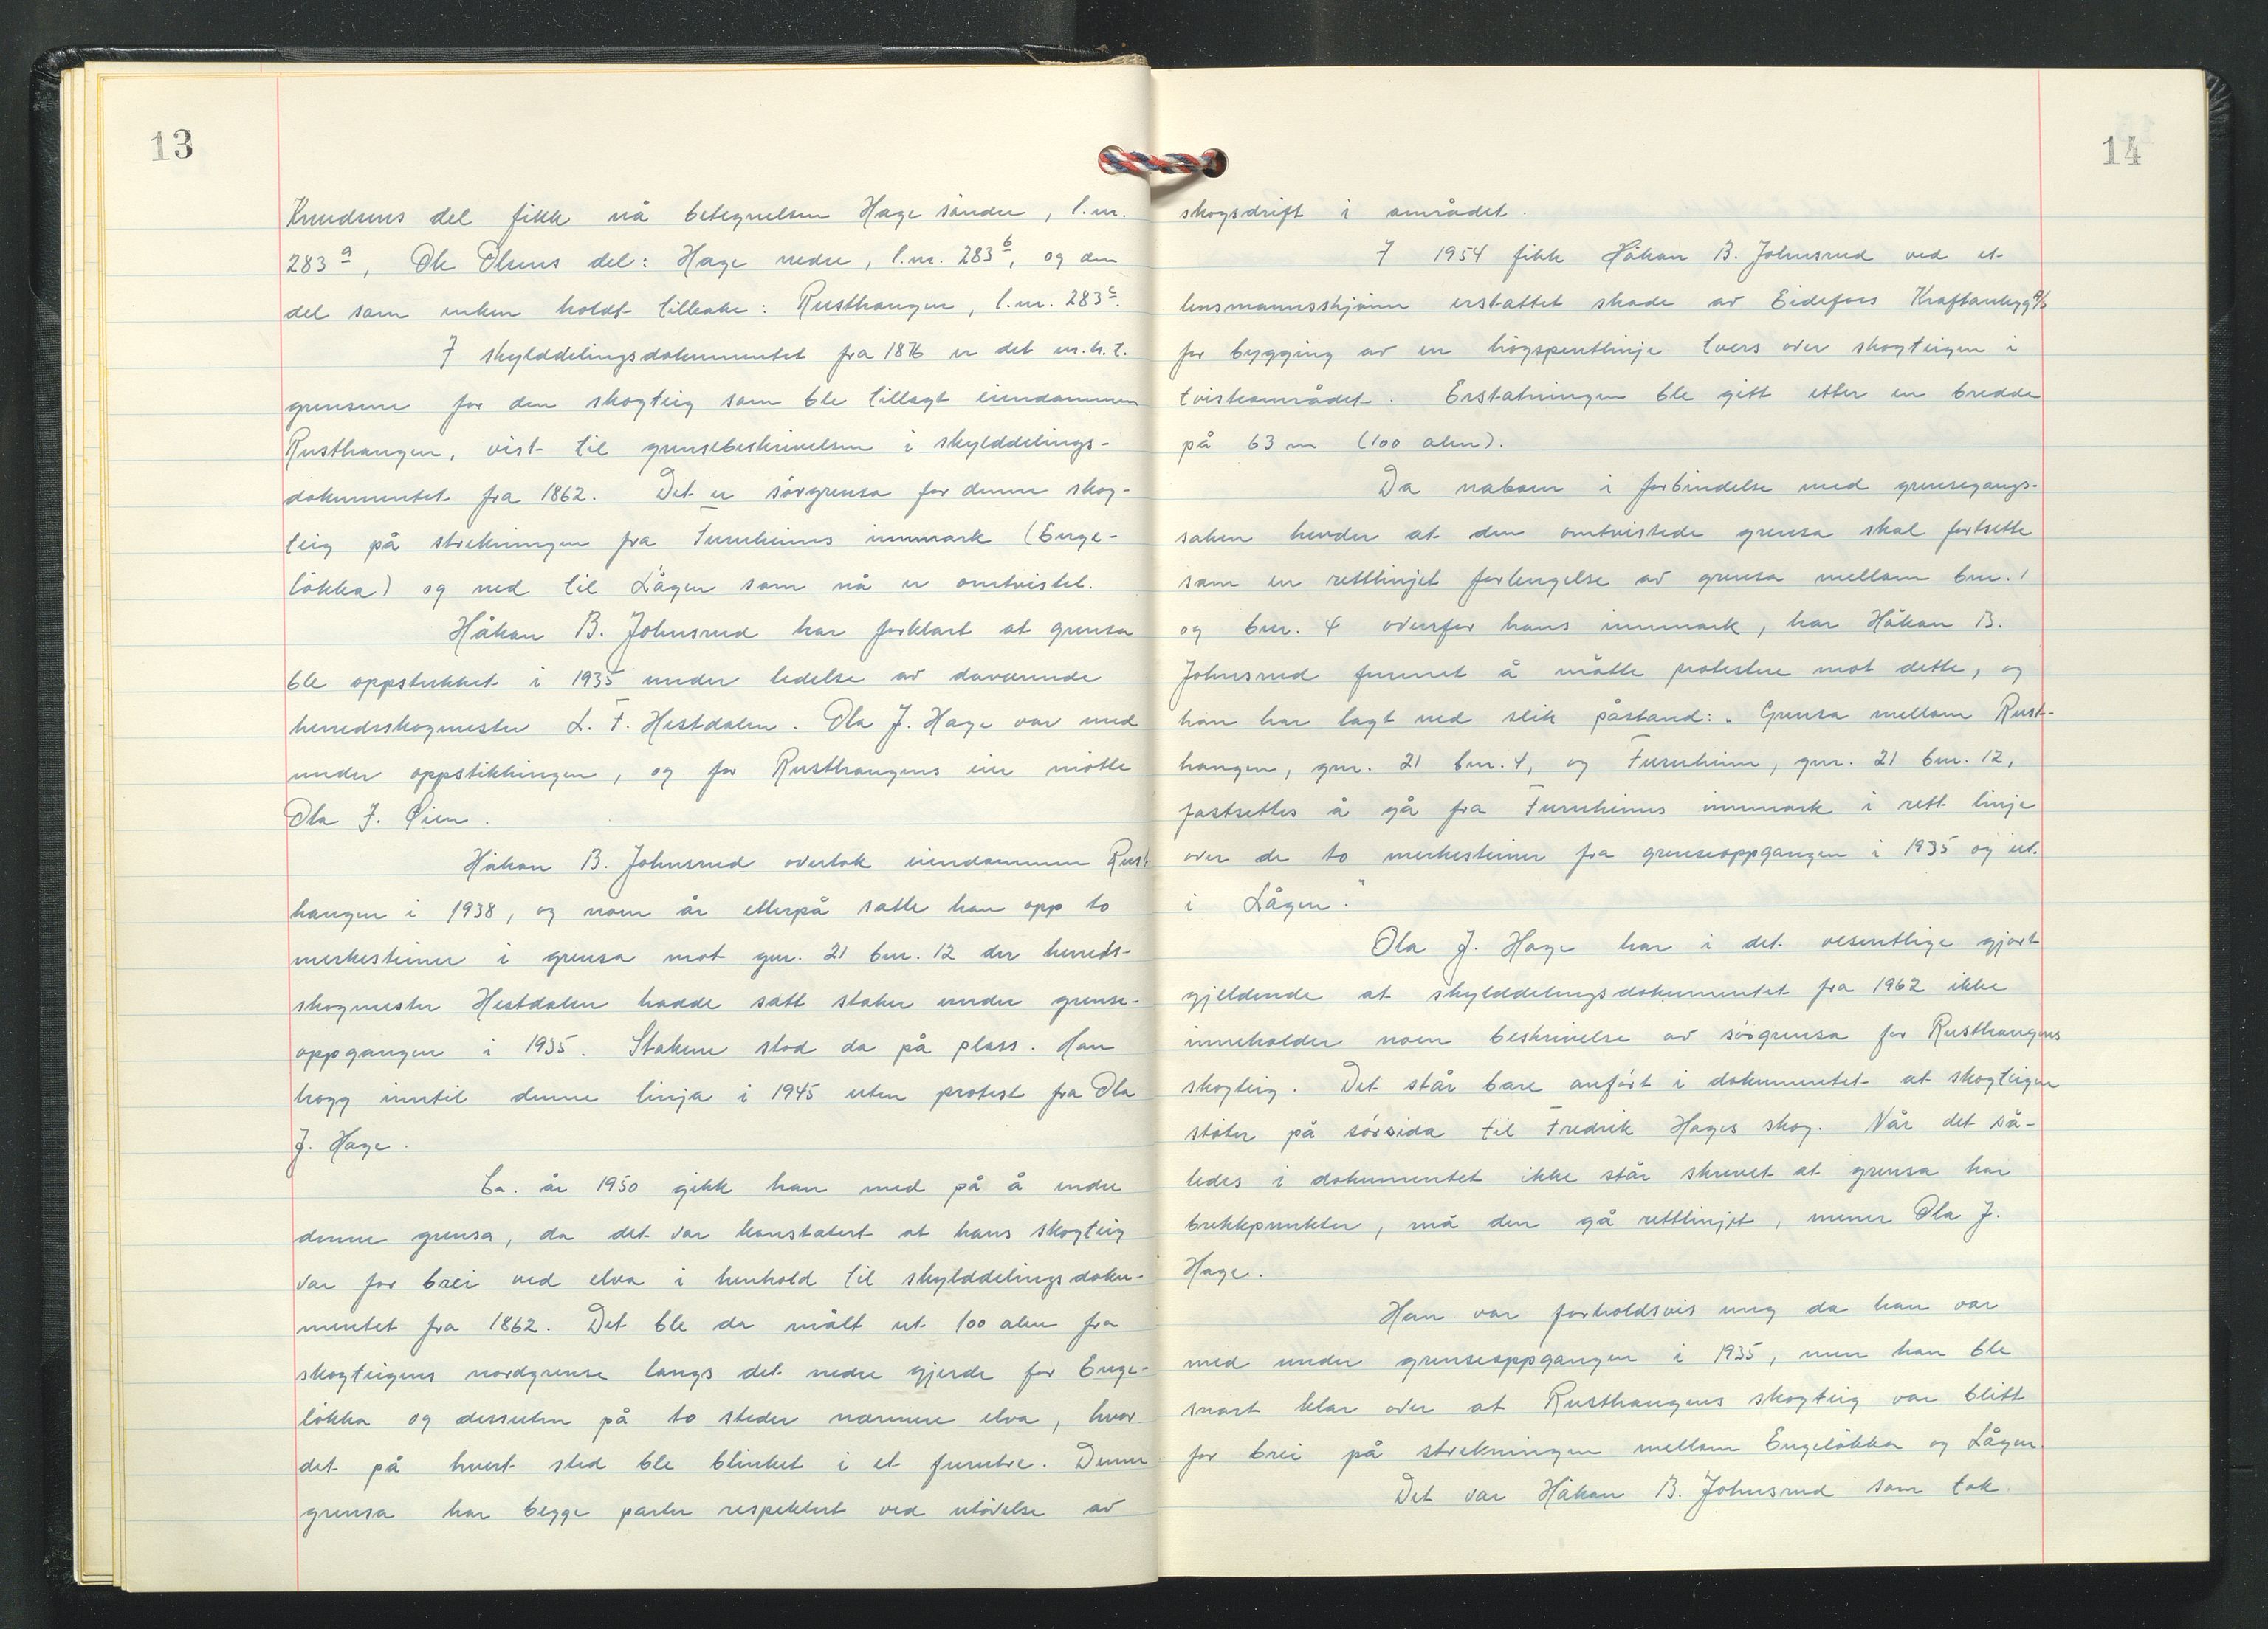 13
Knudsens del fikk nå betegnelsen Hage søndre, l.nr.
283a, Ole Olsens del: Hage nedre, l.nr. 283b, og den
del som enken holdt tilbake: Rusthaugen, l.nr. 283c.
I skylddelingsdokumentet fra 1876 er det m.h.t.
grensene for den skogteig som ble tillagt eiendommen
Rusthaugen, vist til grensebeskrivelsen i skylddelings-
dokumentet fra 1862. Det er sørgrensa for denne skog-
teig på strekningen fra Furuheims innmark (Enge-
løkka) og ned til Lågen som nå er omtvistet.
Håkon B. Johnsrud har forklart at grensa
ble oppstukket i 1935 under ledelse av daværende
herredsskogmester L. F. Hestdalen. Ola J. Hage var med
under oppstikkingen, og for Rusthaugens eier møtte
Ola J. Øien.
Håkon B. Johnsrud overtok eiendommen Rust-
haugen i 1938, og noen år etterpå satte han opp to
merkesteiner i grensa mot gnr. 21 bnr. 12 der herreds-
skogmester Hestdalen hadde satt staker under grense-
oppgangen i 1935. Stakene stod da på plass. Han
hogg inntil denne linja i 1945 uten protest fra Ola
J. Hage.
Ca. år 1950 gikk han med på å endre
denne grensa, da det var konstatert at hans skogteig
var for brei ved elva i henhold til skylddelingsdoku-
mentet fra 1862. Det ble da målt ut 100 alen fra
skogteigens nordgrense langs det nedre gjerde for Enge-
løkka og dessuten på to steder nærmere elva, hvor
det på hvert sted ble blinket i et furutre. Denne
grensa har begge parter respektert ved utøvelse av
14
skogsdrift i området.
I 1954 fikk Håkon B. Johnsrud ved et
lensmannsskjønn erstattet skade av Eidefoss Kraftanlegg A/S
for bygging av en høgspentlinje tvers over skogteigen i
tvisteområdet. Erstatningen ble gitt etter en bredde
på 63 m (100 alen).
Da naboen i forbindelse med grensegangs-
saken hevder at den omtvistede grensa skal fortsette
som en rettlinjet forlengelse av grensa mellom bnr. 1
og bnr. 4 ovenfor hans innmark, har Håkon B.
Johnsrud funnet å måtte protestere mot dette, og
han har lagt ned slik påstand: „Grensa mellom Rust-
haugen, gnr. 21 bnr. 4, og Furuheim, gnr. 21 bnr. 12,
fastsettes å gå fra Furuheims innmark i rett linje
over de to merkesteiner fra grenseoppgangen i 1935 og ut
i Lågen."
Ola J. Hage har i det vesentlige gjort
gjeldende at skylddelingsdokumentet fra 1962 ikke
inneholder noen beskrivelse av sørgrensa for Rusthaugens
skogteig. Det står bare anført i dokumentet at skogteigen
støter på sørsida til Fredrik Hages skog. Når det så-
ledes i dokumentet ikke står skrevet at grensa har
brekkpunkter, må den gå rettlinjet, mener Ola J.
Hage.
Han var forholdsvis ung da han var
med under grenseoppgangen i 1935, men han ble
snart klar over at Rusthaugens skogteig var blitt
for brei på strekningen mellom Engeløkka og Lågen.
Det var Håkon B. Johnsrud som tok